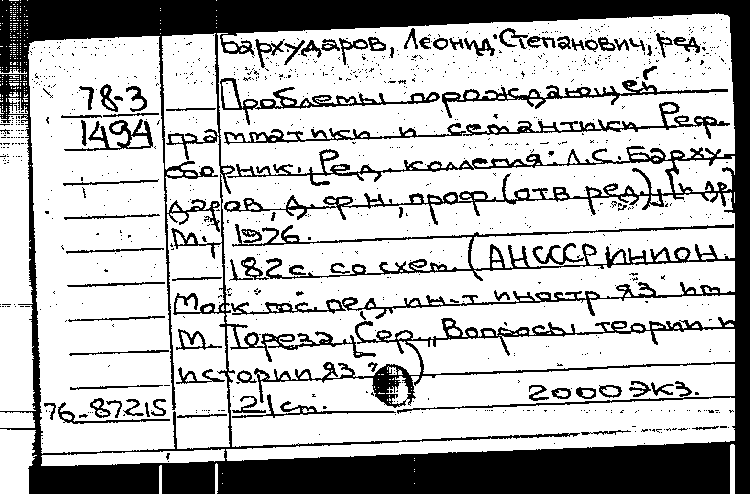 Бархударов, Леонид Степанович, ред.
78-3 Проблемы порождающей
1494 грамматики и семантики Реф.
сборник. [Ред. коллегия: Л.С. Барху-
даров, д. ф. н., проф. (отв. ред.), [и др]
М., 1976.
182 с. со схем. (АН СССР. ИНИОН.
Моск. гос. пед. ин-т иностр. яз. им.
М. Тореза. [Сер. „Вопросы теории и
истории яз.")
76-87215 21 см. 2000 экз.